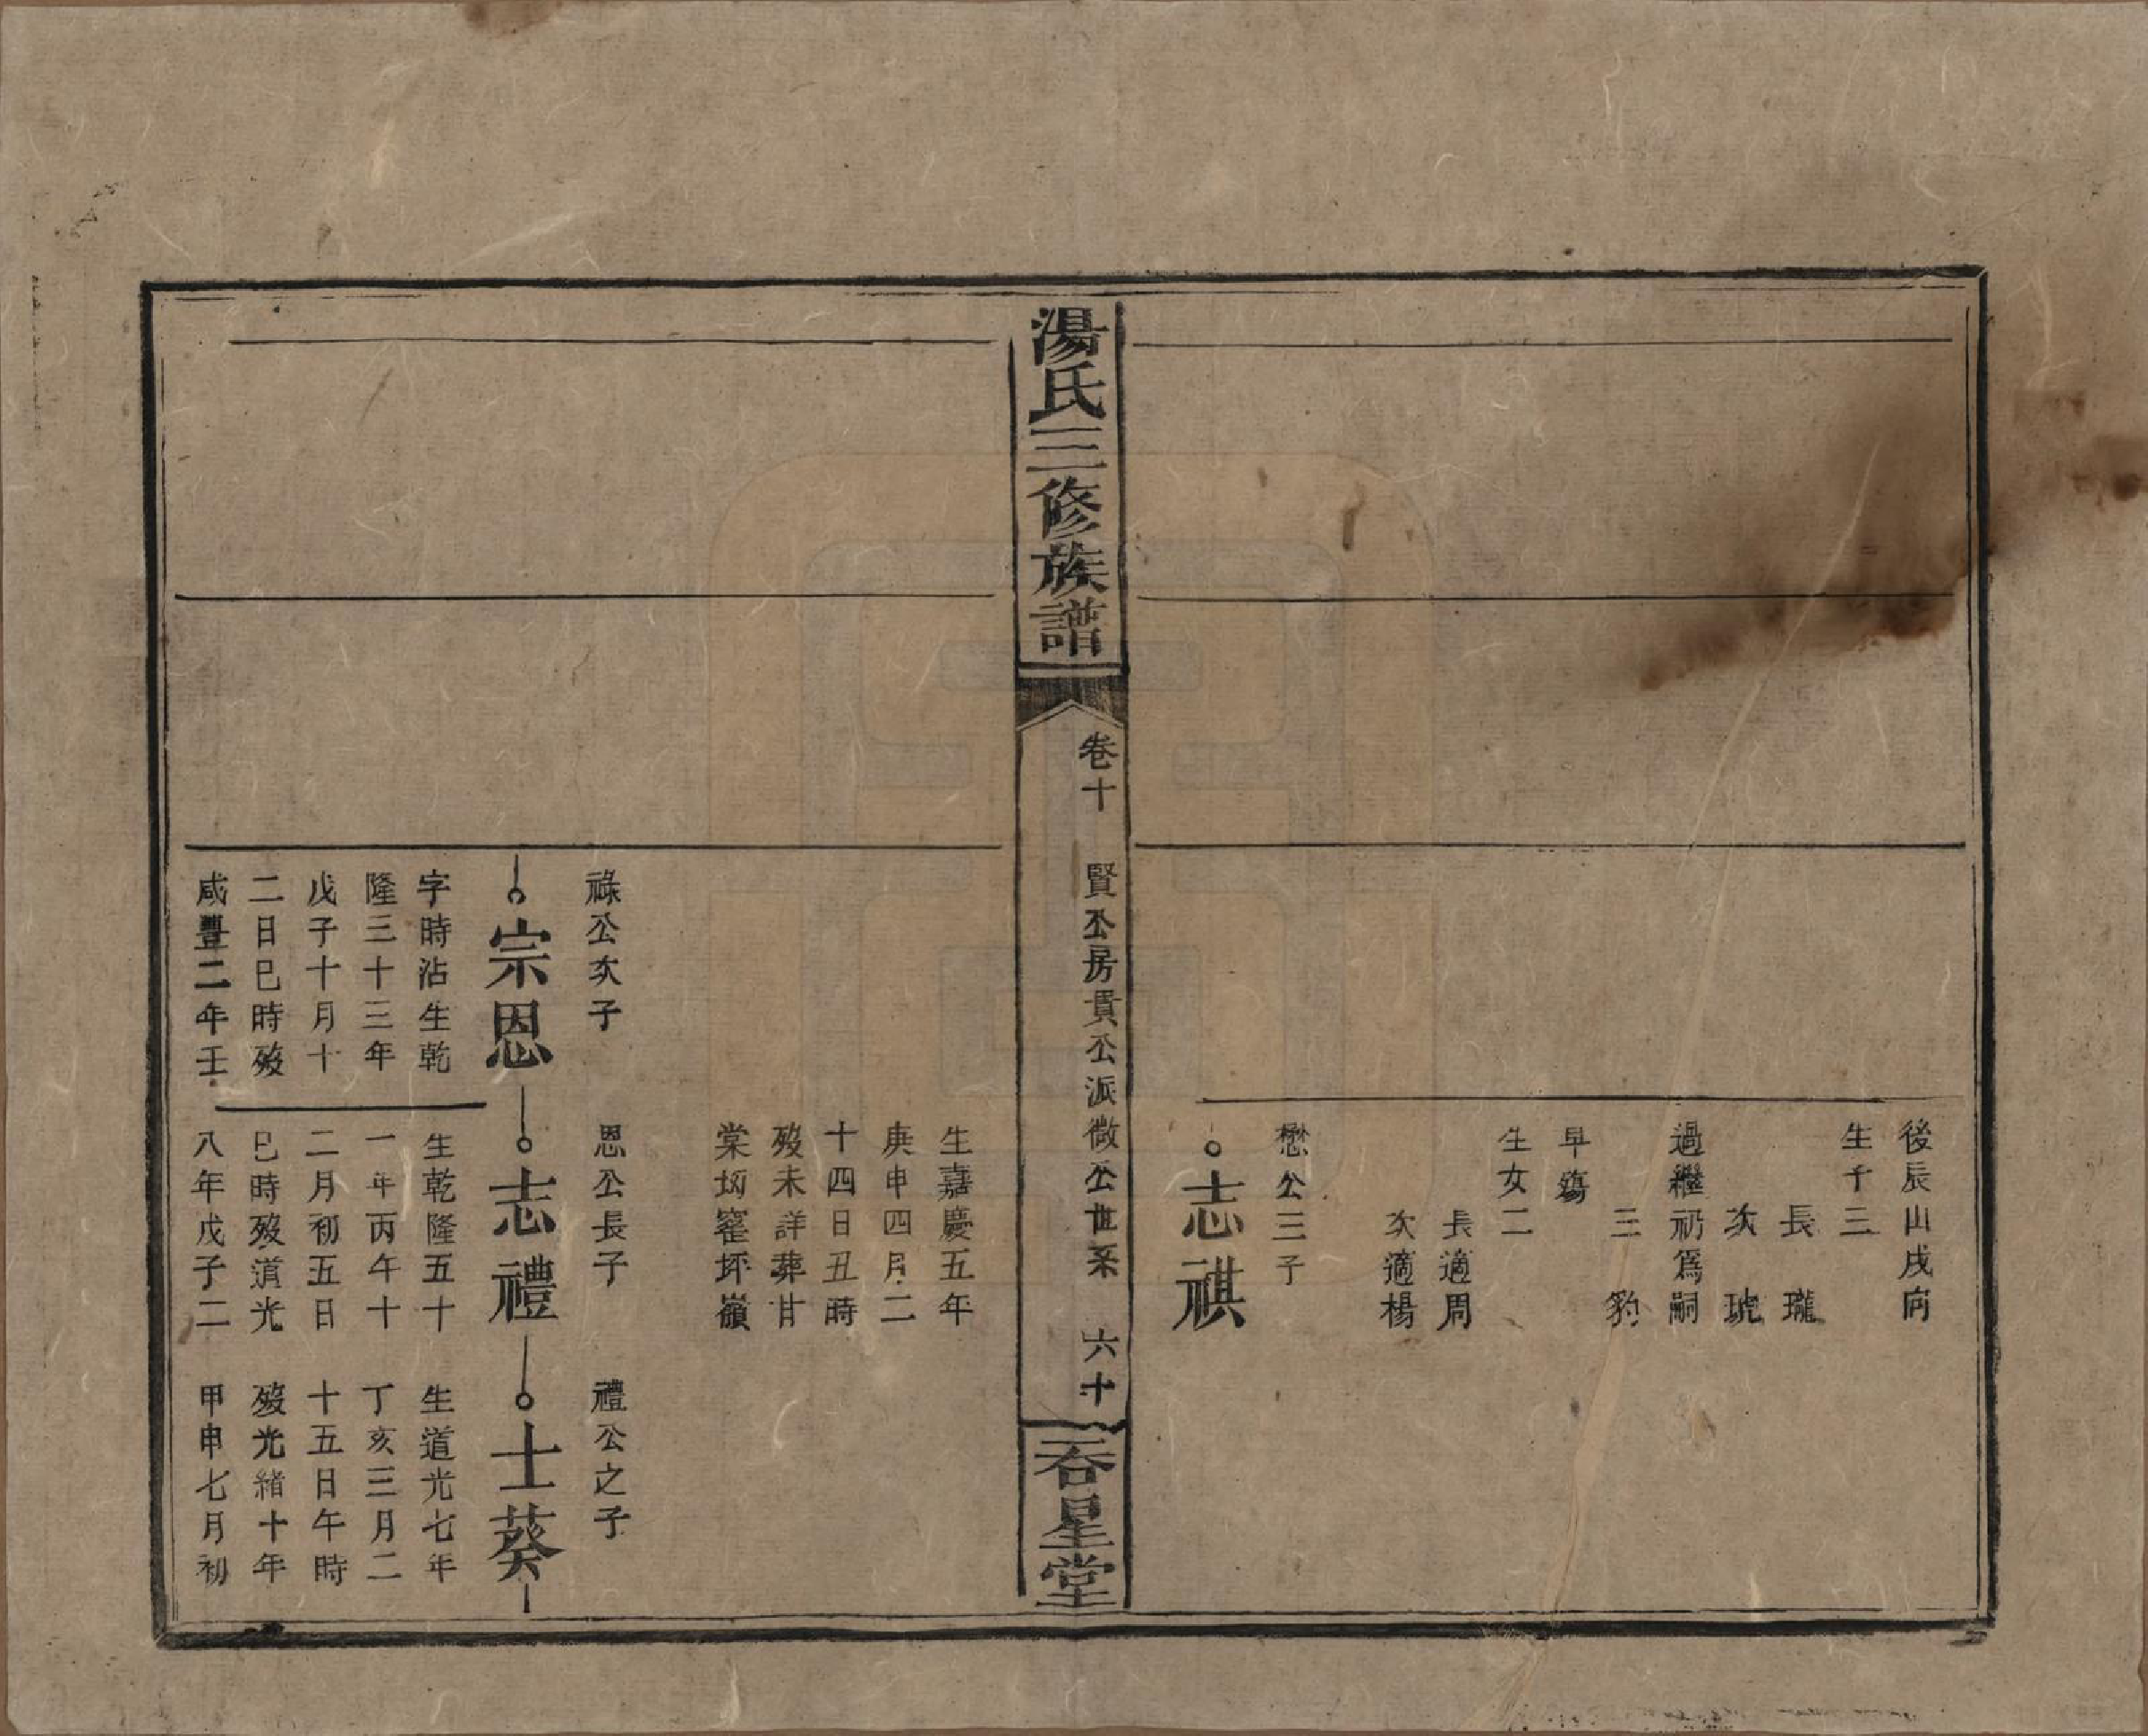 後辰山戌向
生子三
長　瓏
次　琥
過繼礽爲嗣
三　豹
早殤
生女二
長適周
次適楊
懋公三子
志祺
湯氏三修族譜
卷十　賢公房貫公派徵公世系　六十
吞星堂
生嘉慶五年
庚申四月二
十四日丑時
歿未詳葬甘
棠坳窰坏嶺
祿公次子
宗恩
字時沾生乾
隆三十三年
戊子十月十
二日巳時歿
咸豐二年壬
恩公長子
志禮
生乾隆五十
一年丙午十
二月初五日
巳時歿道光
八年戊子二
禮公之子
士葵
生道光七年
丁亥三月二
十五日午時
歿光緒十年
甲申七月初